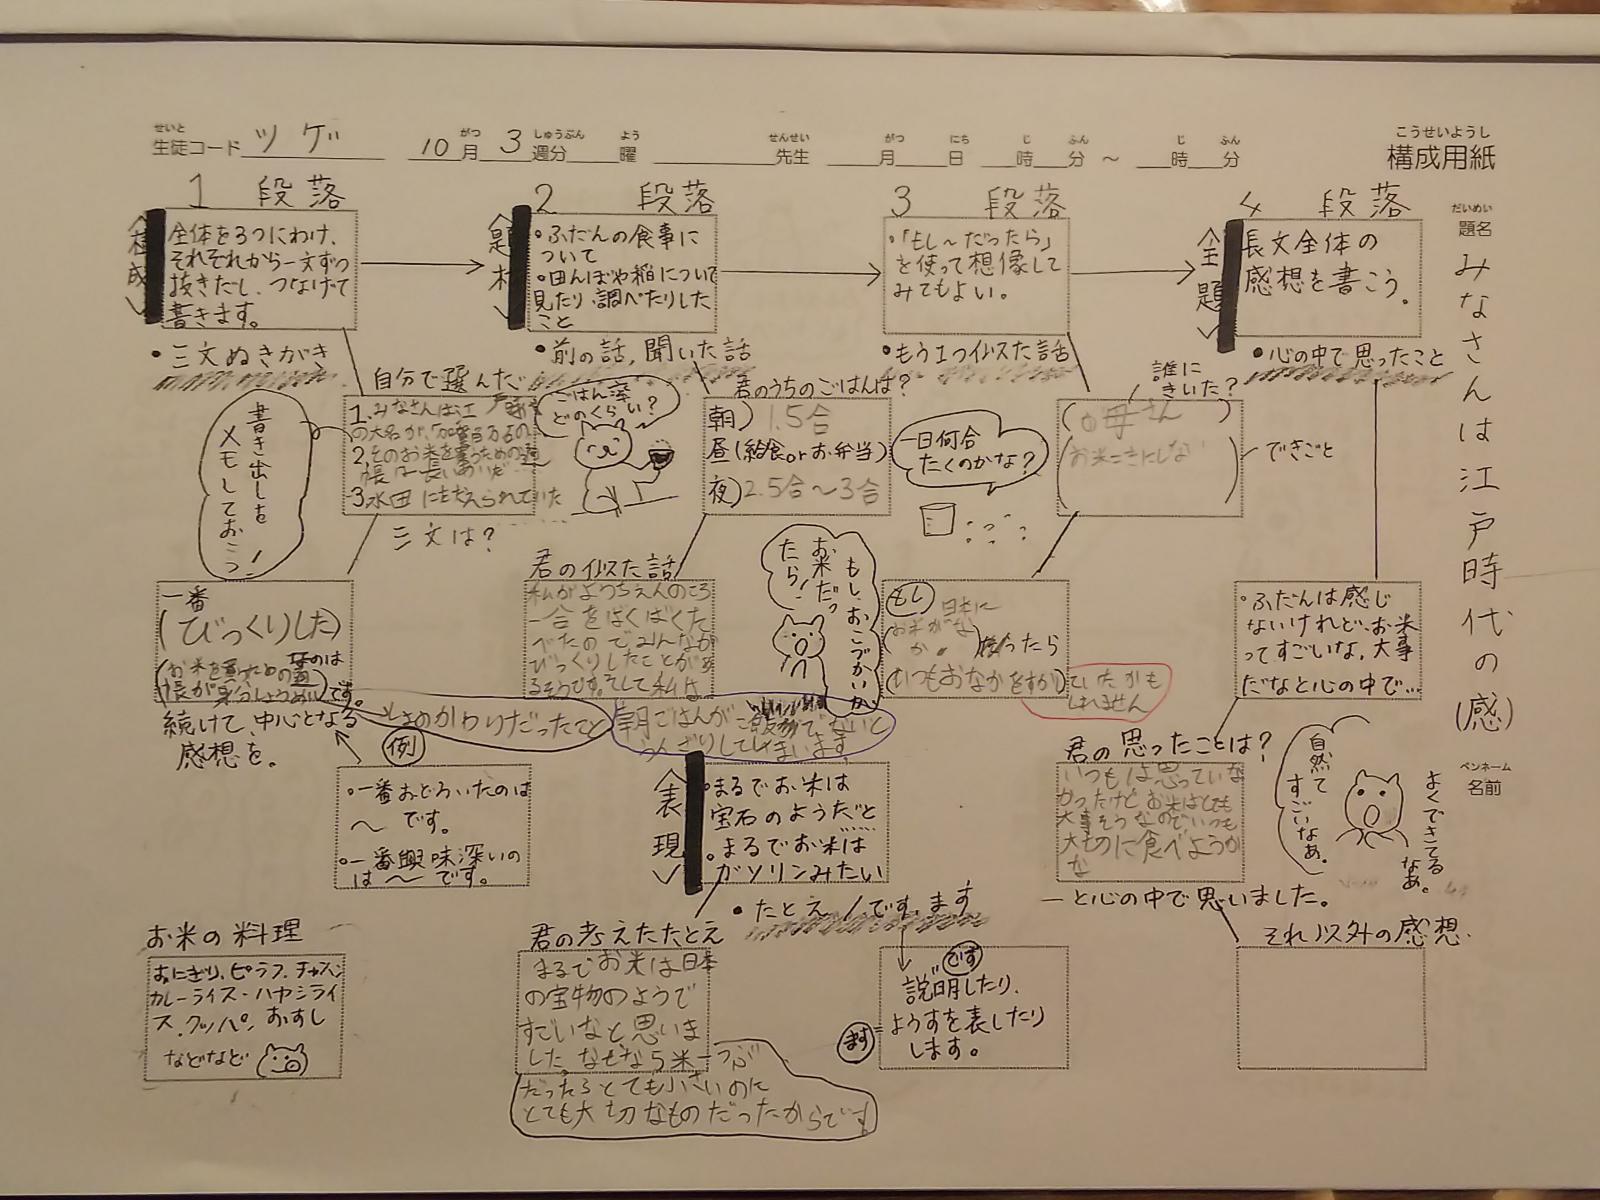 せいと がつ しゅうぶん よう せんせい がつ にち じ ふん じ ふん
生徒コード ツゲ 10月 3週分 曜 先生 月 日 時 分 ～ 時 分
こうせいようし
構成用紙
だいめい
題名
みなさんは江戸時代の(感)
ペンネーム
名前
1 段落
構成
全体を3つにわけ、
それぞれから一文ずつ
抜きだし、つなげて
書きます。
・三文ぬきがき
自分で選んだ
1.みなさんは江戸時代
の大名が、加賀百万石の
2.そのお米を買うための通
帳は一長いあいだ…
3.水田にささえられていた
三文は?
書き出しを
メモしておこう!
一番
(びっくりした)
なのは
(お米を買うための通
帳が身分しょうめい)です。
しょのかわりだったこと
続けて、中心となる
感想を。
例
・一番おどろいたのは
～です。
・一番興味深いの
は～です。
お米の料理
おにぎり、ピラフ、チャーハン
カレーライス・ハヤシライ
ス、クッパ、おすし
などなど
2 段落
題材
・ふだんの食事に
ついて
・田んぼや稲について
見たり、調べたりした
こと
・前の話、聞いた話
ごはん茶
どのくらい?
君のうちのごはんは?
朝)1.5合
昼(給食orお弁当)
夜)2.5合～3合
一日何合
たくのかな?
君の似た話
私がようちえんのころ
一合をぱくぱくた
べたのでみんなが
びっくりしたことがあ
るそうです。そして私は
朝ごはんがご飯でないと
うんざりしてしまいます。
表現
・まるでお米は
宝石のようだと
・まるでお米は
ガソリンみたい
・たとえ/です、ます
君の考えたたとえ
まるでお米は日本
の宝物のようで
すごいなと思いま
した。なぜなら米一つぶ
だったらとても小さいのに
とても大切なものだったからです。
です
説明したり、
ます
ようすを表したり
します。
3 段落
・「もし～だったら」
を使って想像して
みてもよい。
・もう1つ似た話
誰に
きいた?
(お母さん)
できごと
もし、おこづかいが
お米だっ
たら!
もし
日本に
(お米がな
か。)ったら
(いつもおなかをすかし)
ていたかも
しれません
4 段落
全題
長文全体の
感想を書こう。
・心の中で思ったこと
・ふだんは感じ
ないけれど、お米
ってすごいな、大事
だなと心の中で…
君の思ったことは?
いつもは思っていな
かったけどお米はとても
大事そうなのでいつも
大切に食べようか
な
―と心の中で思いました。
自然て
すごいなあ。
よくできてる
なあ。
それ以外の感想